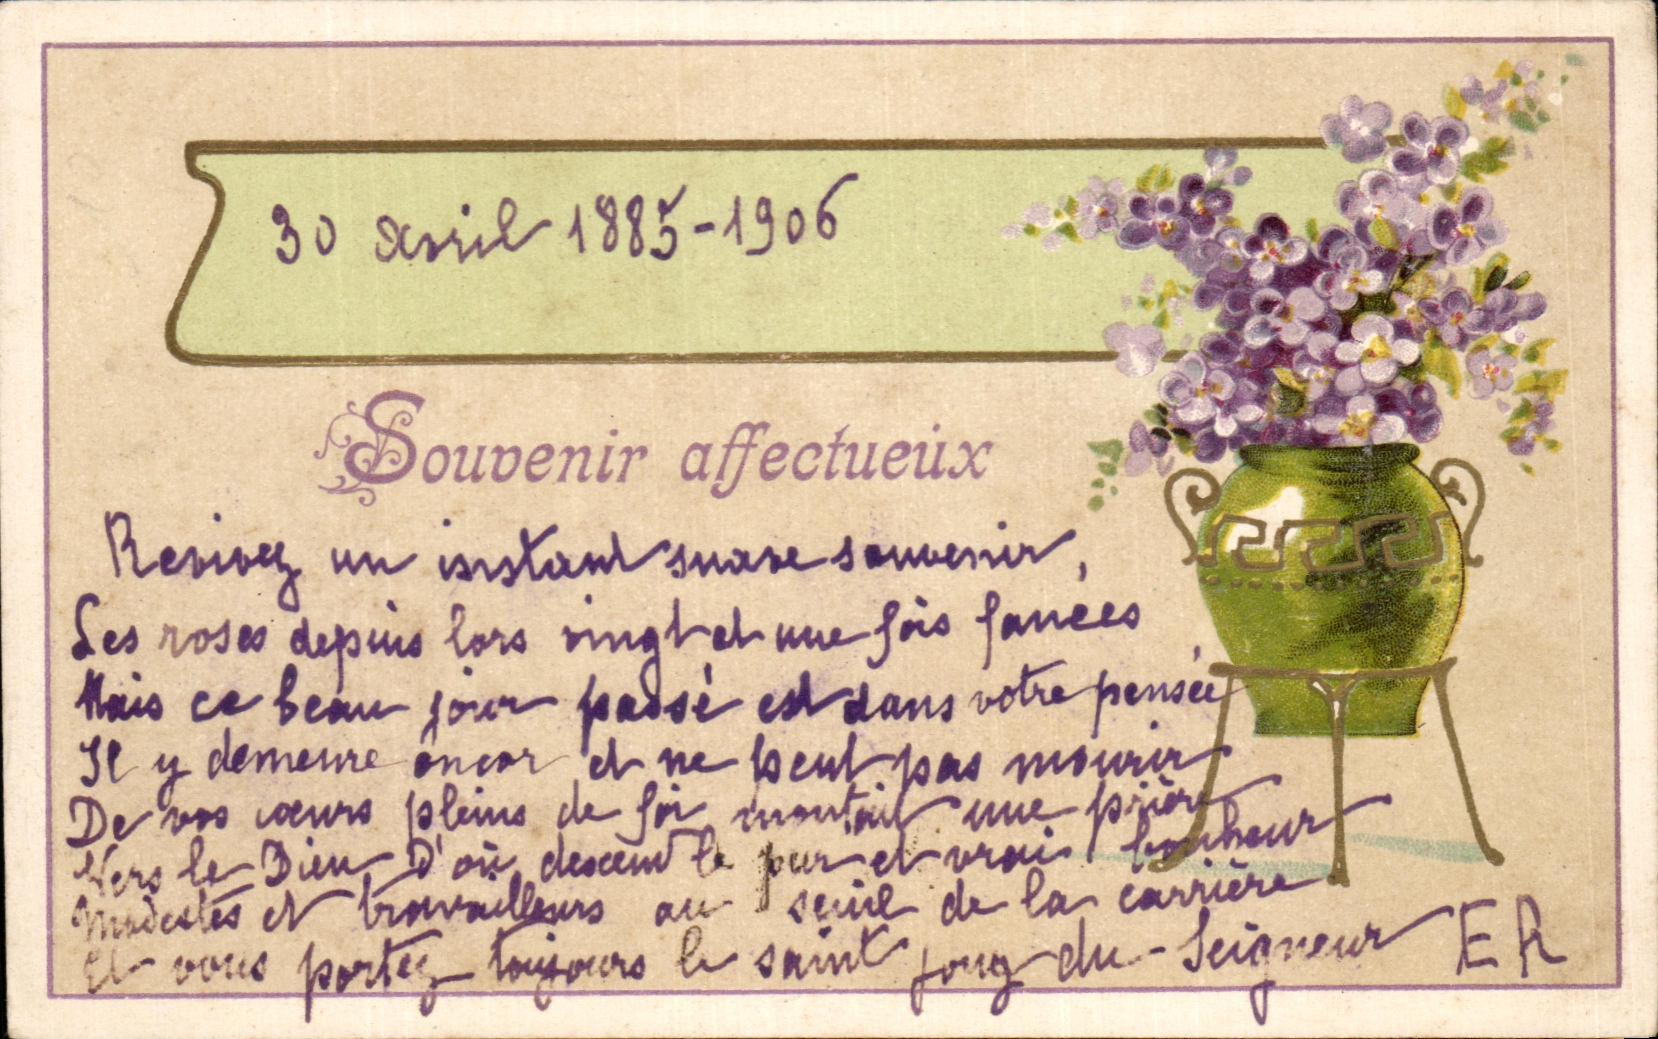 30 Avril 1885-1906
Souvenir affectueux
Revivez un instant suave souvenir,
Les roses depuis lors vingt et une fois fanées
Mais ce beau jour passé est dans votre pensée
Il y demeure encor et ne peut pas mourir
De vos cœurs pleins de foi montait une prière
Vers le Dieu D'où descend le pur et vrai bonheur
Modestes et travailleurs au seuil de la carrière
Et vous portez toujours le saint joug du Seigneur E R